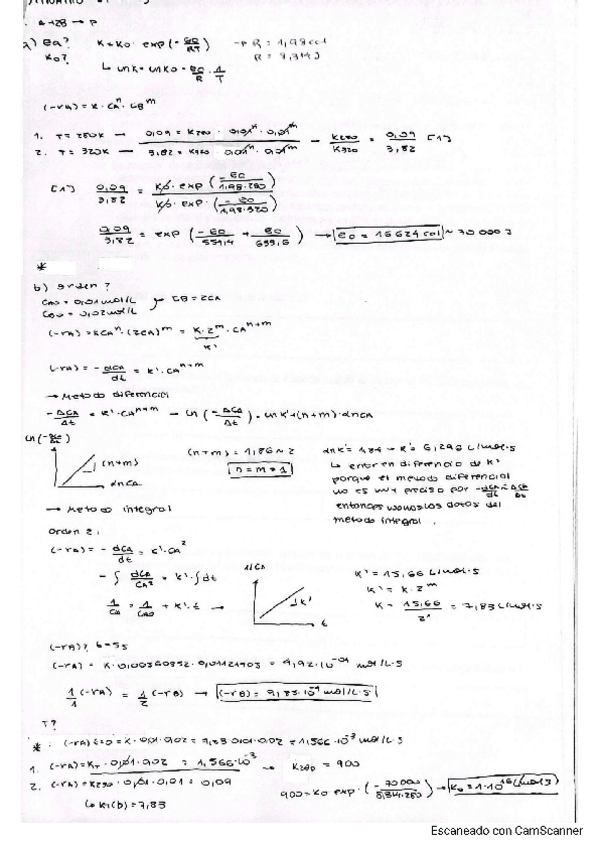 A+2B → P
a) Ea? K=K0 · exp(-E0/RT) → R = 1,98 cal
K0? R = 8,314 J
↳ lnK = lnK0 - E0/R · 1/T
(-rA) = K · CA^n · CB^m
1. T = 280K → 0,09 = K280 · 0,01^n · 0,01^m
2. T = 320K → 3,82 = K320 · 0,01^n · 0,01^m → K280/K320 = 0,09/3,82 [1]
[1] 0,09/3,82 = K0 · exp(-E0/1,98·280) / K0 · exp(-E0/1,98·320)
0,09/3,82 = exp(-E0/554,4 + E0/633,6) → E0 = 16624 cal ~ 70 000 J
*
b) orden?
CA0 = 0,01 mol/L
CB0 = 0,02 mol/L → CB = 2CA
(-rA) = K CA^n · (2CA)^m = K·2^m · CA^n+m
K'
(-rA) = -dCA/dt = K' · CA^n+m
→ Metodo diferencial
-ΔCA/Δt = K' · CA^n+m → ln(-ΔCA/Δt) = lnK' + (n+m) · lnCA
(n+m)
lnCA
(n+m) = 1,86 ~ 2
n = m = 1
lnK' = 1,84 → K' = 6,296 L/mol·s
↳ error en diferencia de K'
porque el metodo diferencial
no es muy preciso por -dCA/dt ≃ ΔCA/Δt
entonces usamos los datos del
metodo integral.
→ Metodo integral
Orden 2:
(-rA) = -dCA/dt = K' · CA^2
-∫ dCA/CA^2 = K' · ∫dt
1/CA = 1/CA0 + K' · t →
1/CA
K'
t
K' = 15,66 L/mol·s
K' = K · 2^m
K = 15,66/2^1 = 7,83 L/mol·s
(-rA)? t=5s
(-rA) = K · 0,00560852 · 0,01121703 = 4,92·10^-04 mol/L·s
1/1 (-rA) = 1/2 (-rB) → (-rB) = 9,83·10^-4 mol/L·s
T?
*: (-rA) t=0 = K · 0,01 · 0,02 = 7,83 · 0,01 · 0,02 = 1,566·10^-3 mol/L·s
1. (-rA) = KT · 0,01 · 0,02 = 1,566·10^-3 → K280 = 900
2. (-rA) = K280 · 0,01 · 0,01 = 0,09
↳ KT(b) = 7,83
900 = K0 exp(-70000/8,314·280) → K0 = 1·10^16
Escaneado con CamScanner